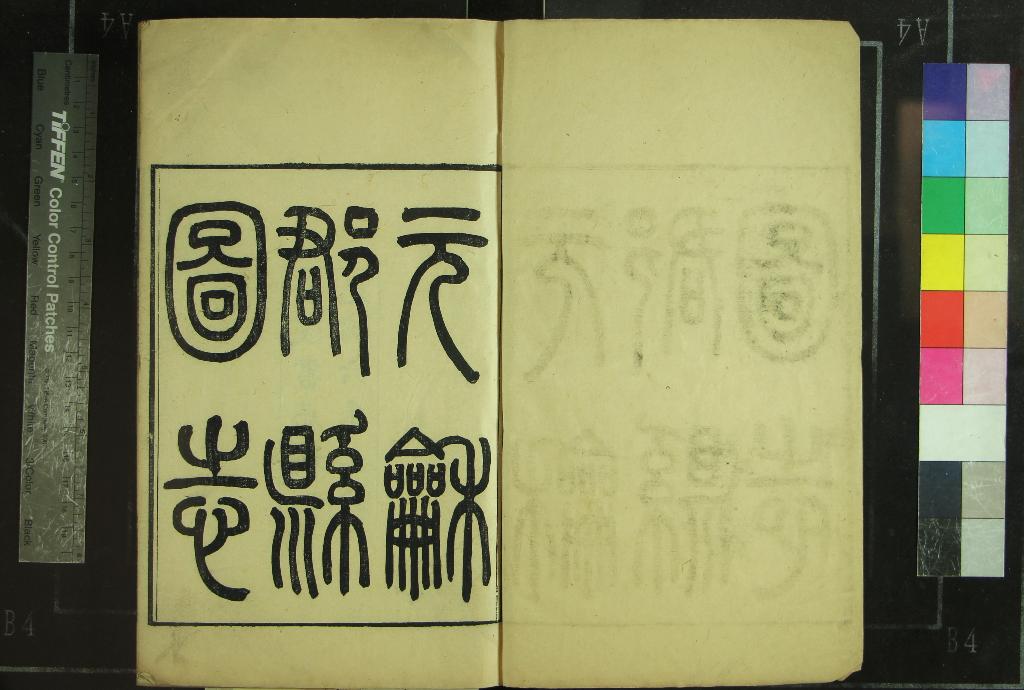 元龢
郡縣
圖志
TIFFEN Color Control Patches
Centimetres
Inches
Blue
Cyan
Green
Yellow
Red
Magenta
White
3/Color
Black
A4
A4
B4
B4